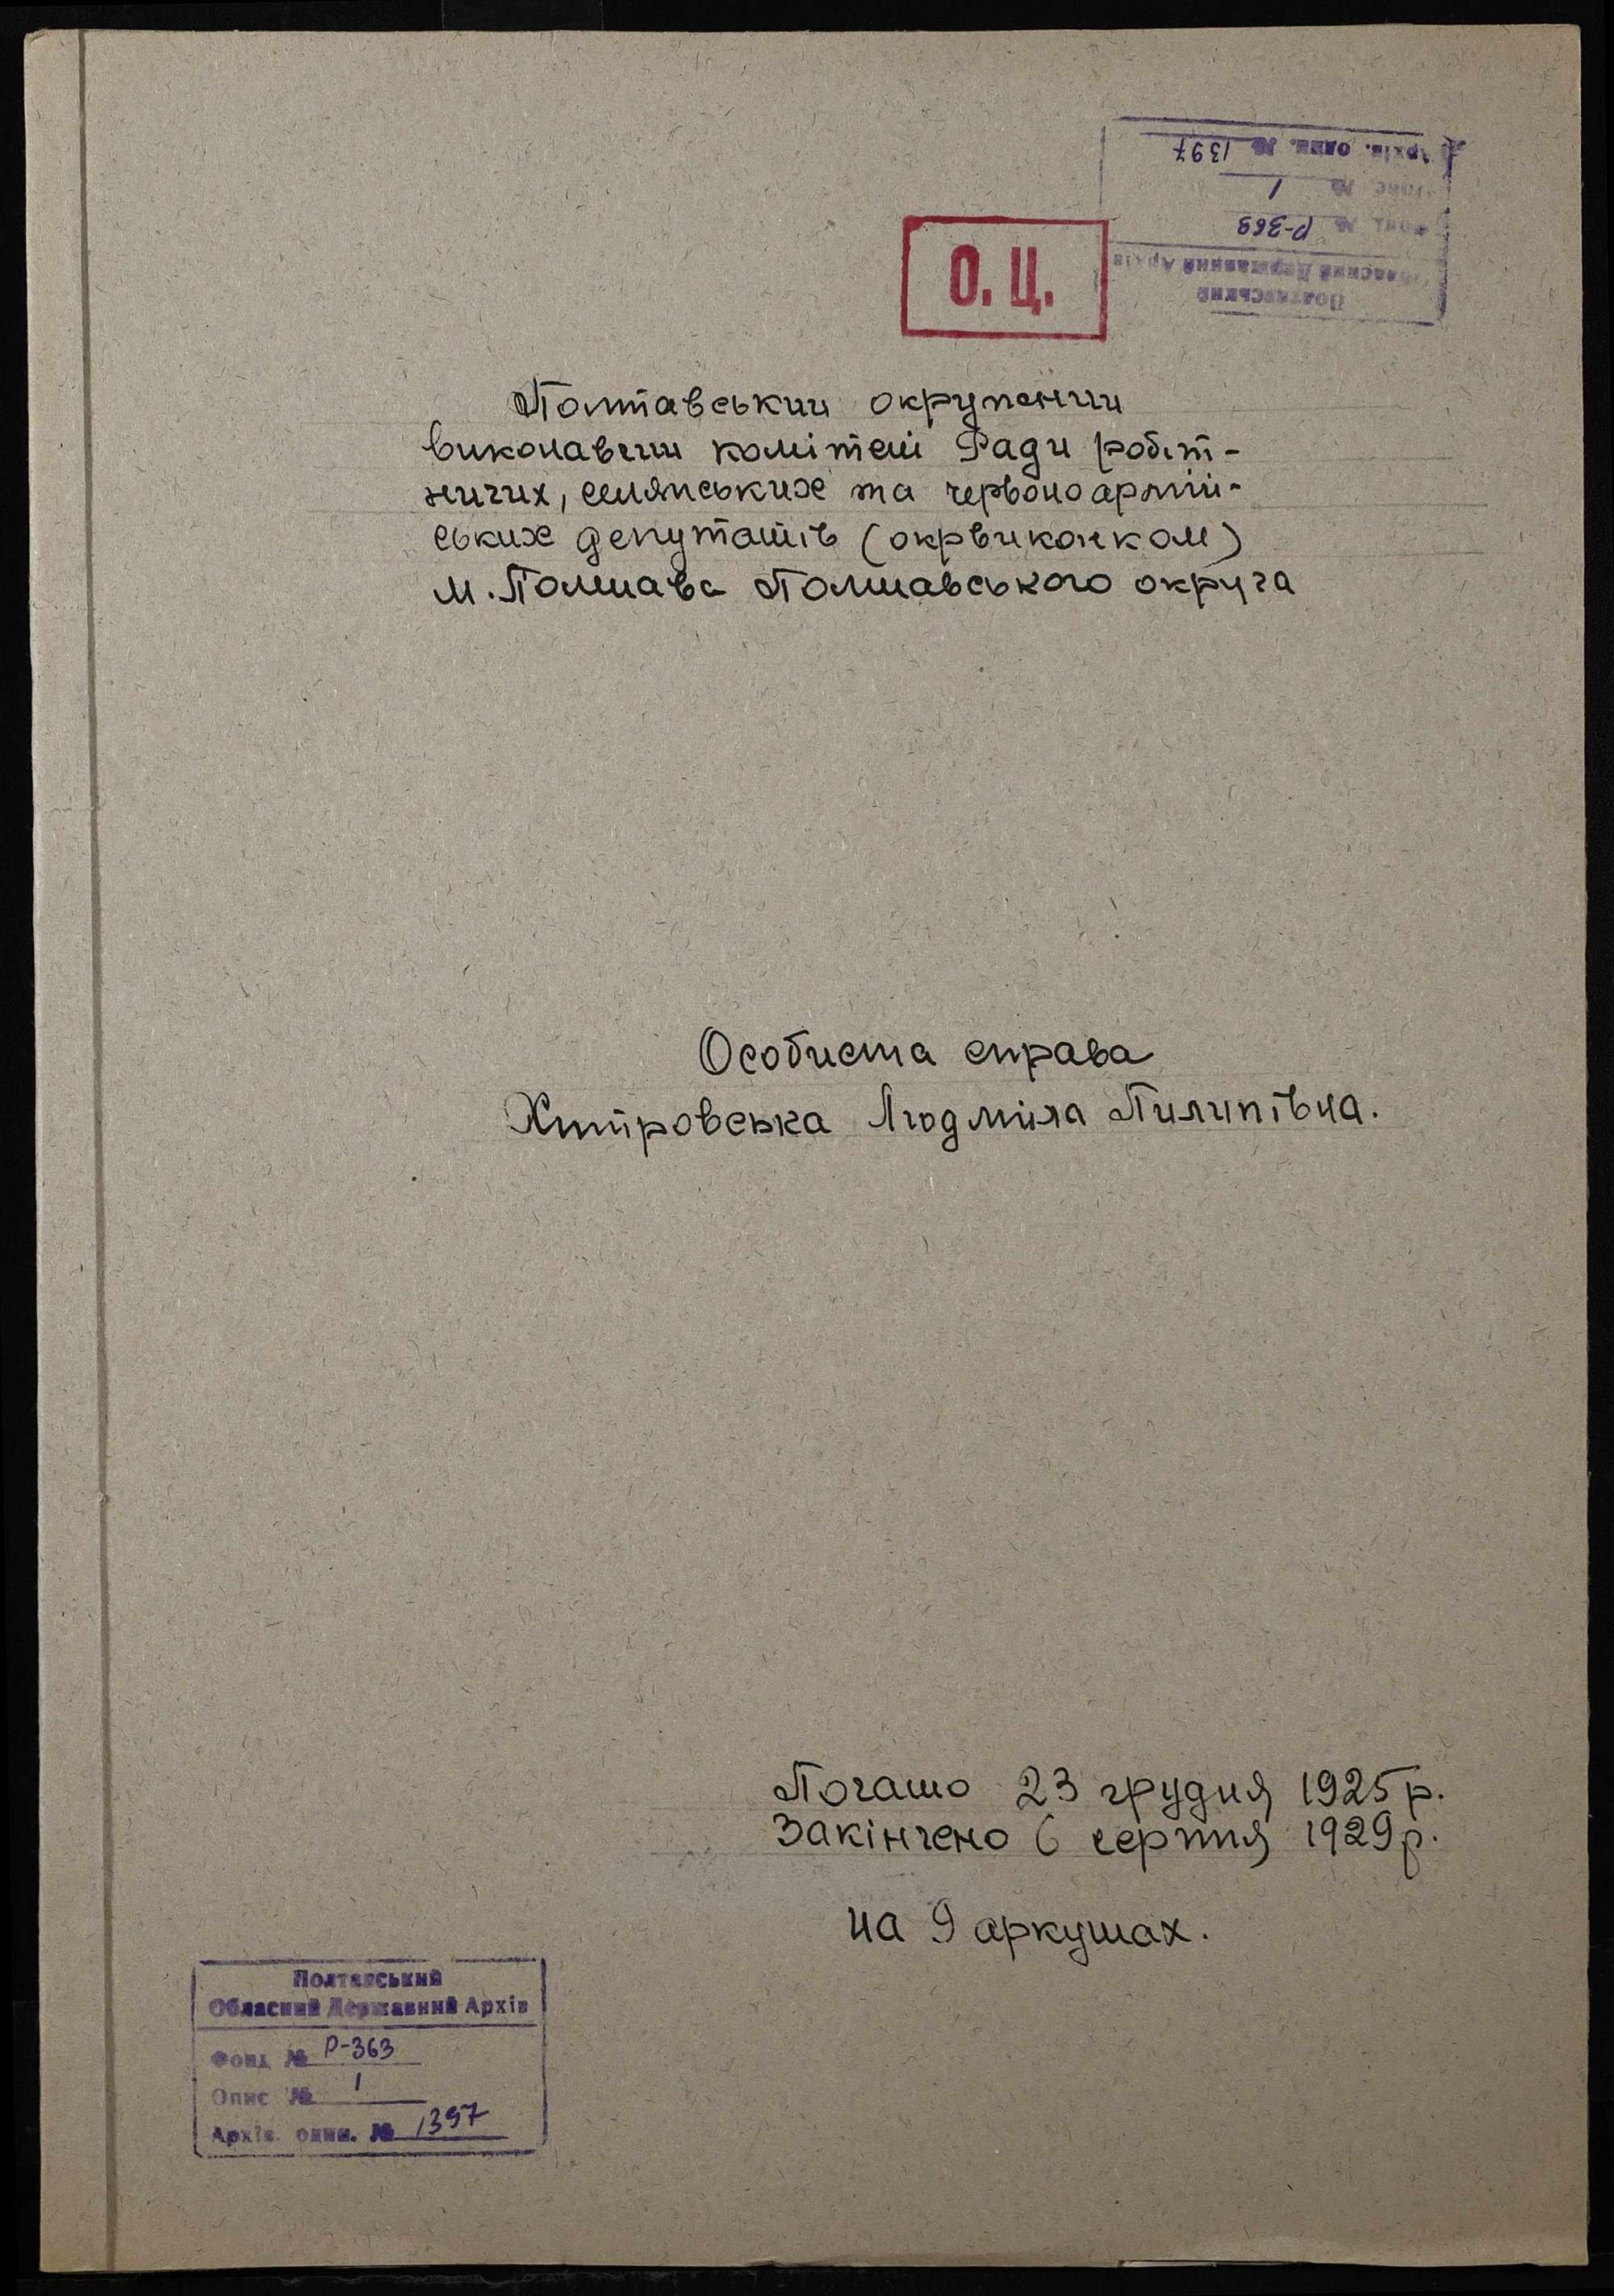 Архів. один. № 1397
Опис № 1
Фонд № Р-363
Обласний Державний Архів
Полтавський
О. Ц.
Полтавський окружний
виконавчий комітет Ради робіт-
ничих, селянських та червоноармій-
ських депутатів (окрвиконком)
м. Полтава Полтавського округа
Особиста справа
Хитровська Людміла Пилипівна.
Почато 23 грудня 1925 р.
Закінчено 6 серпня 1929 р.
на 9 аркушах.
Полтавський
Обласний Державний Архів
Фонд № Р-363
Опис № 1
Архів. один. № 1397